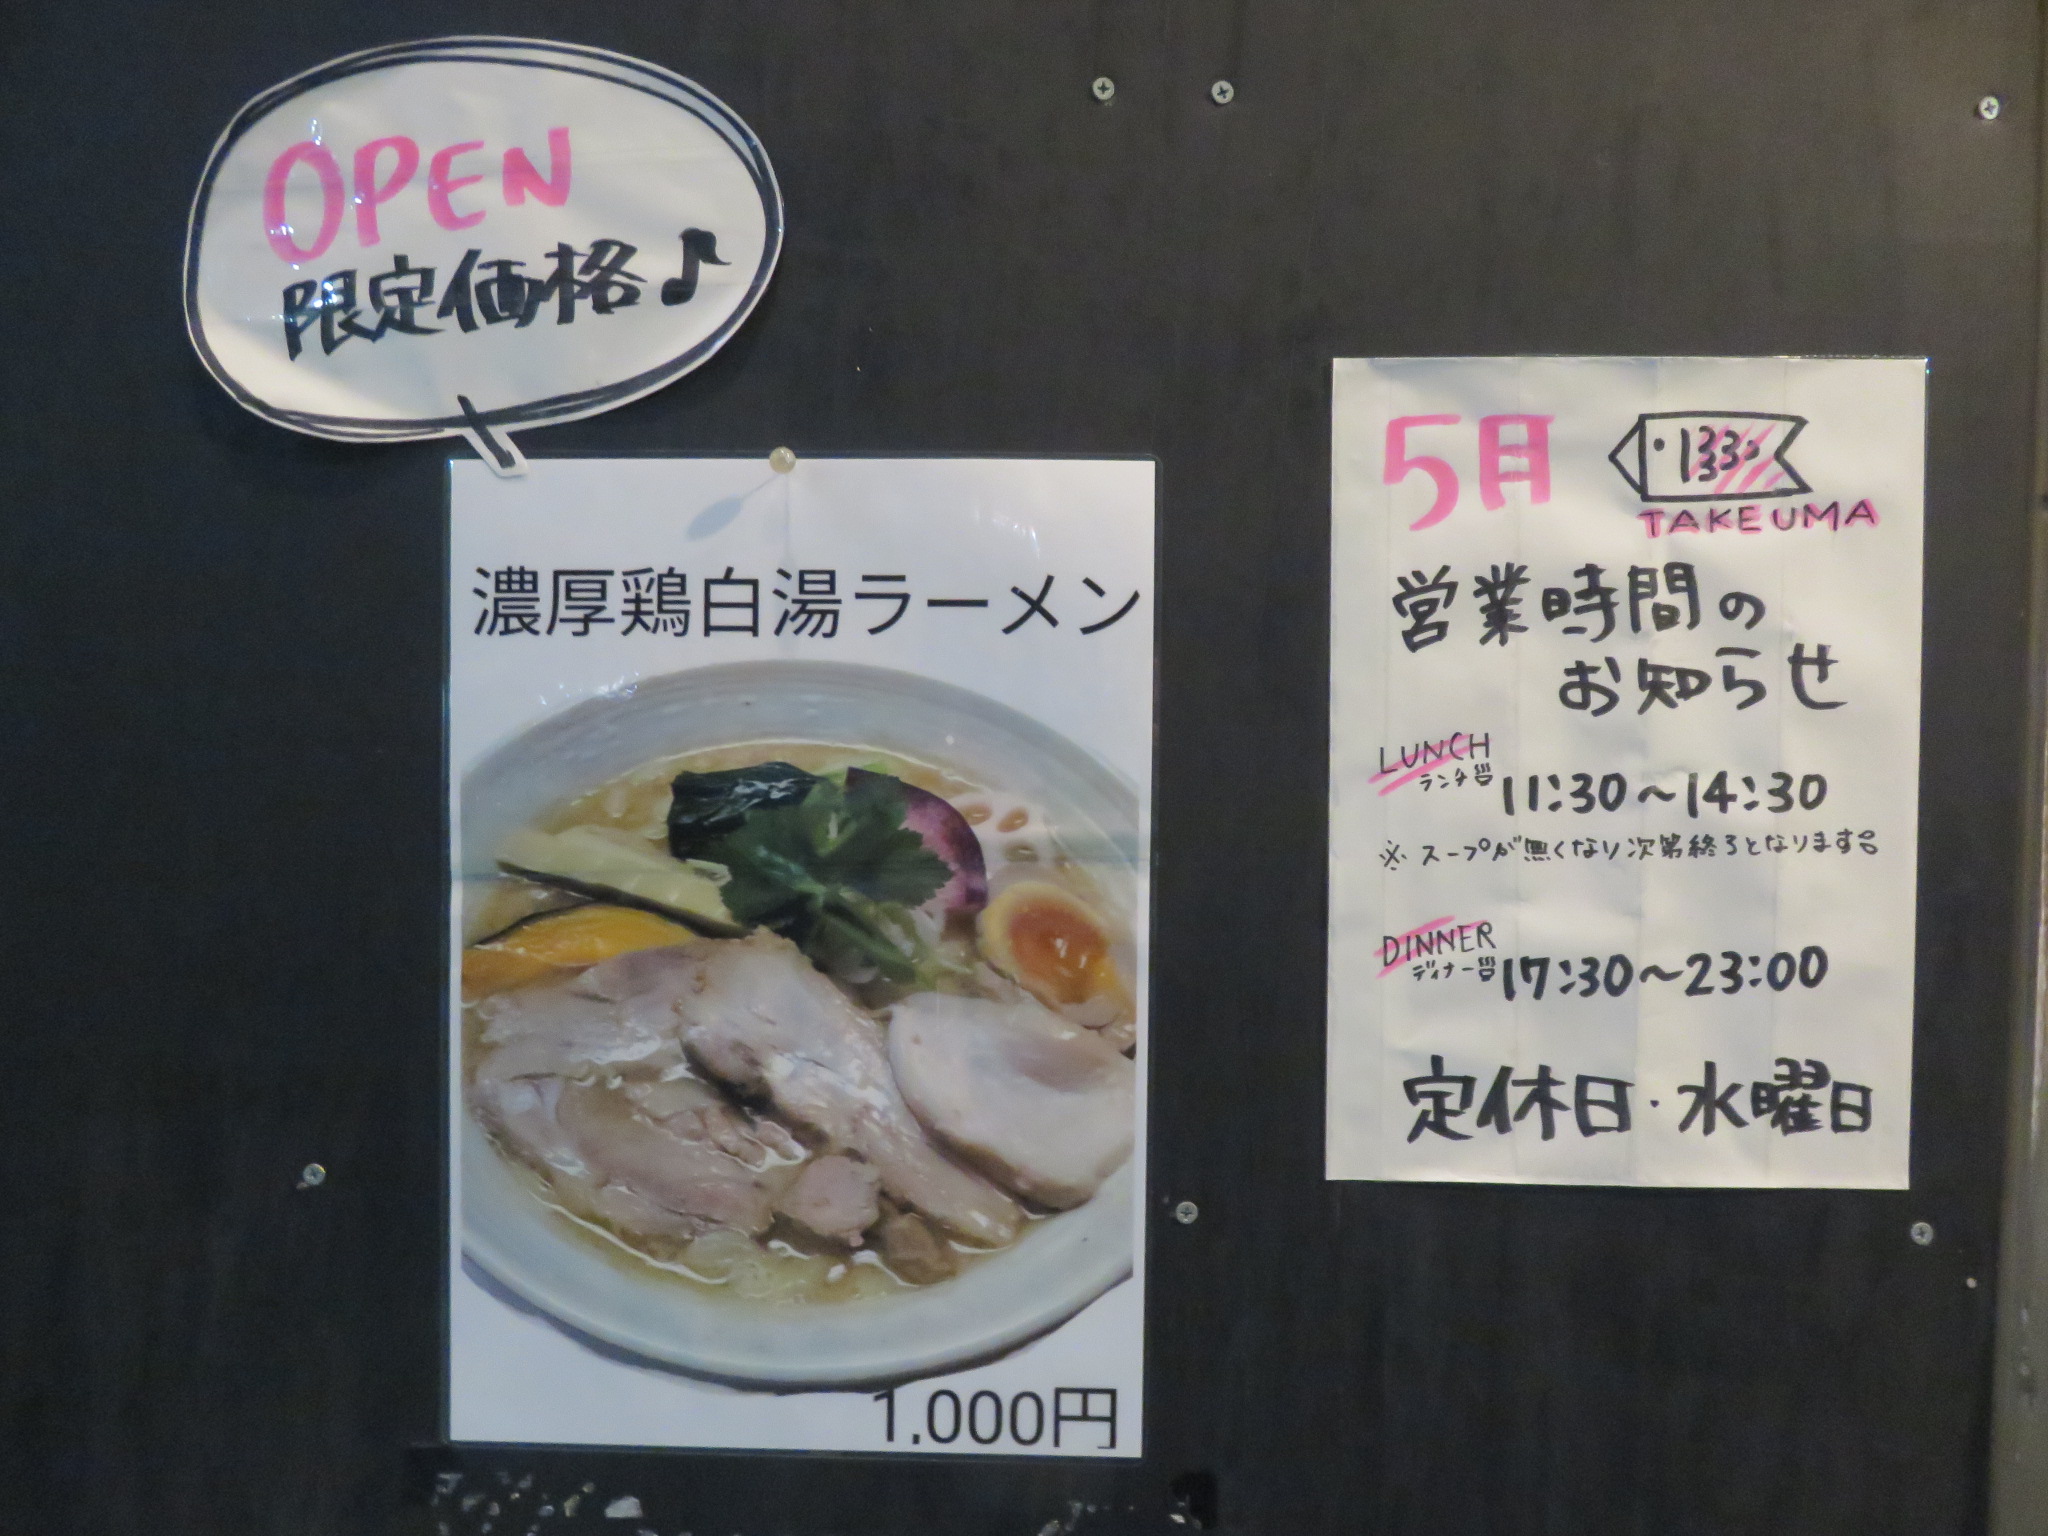 OPEN
限定価格♪
濃厚鶏白湯ラーメン
1.000円
5月
TAKEUMA
営業時間の
お知らせ
LUNCH
ランチ
11:30～14:30
※スープが無くなり次第終了となります。
DINNER
ディナー
17:30～23:00
定休日・水曜日